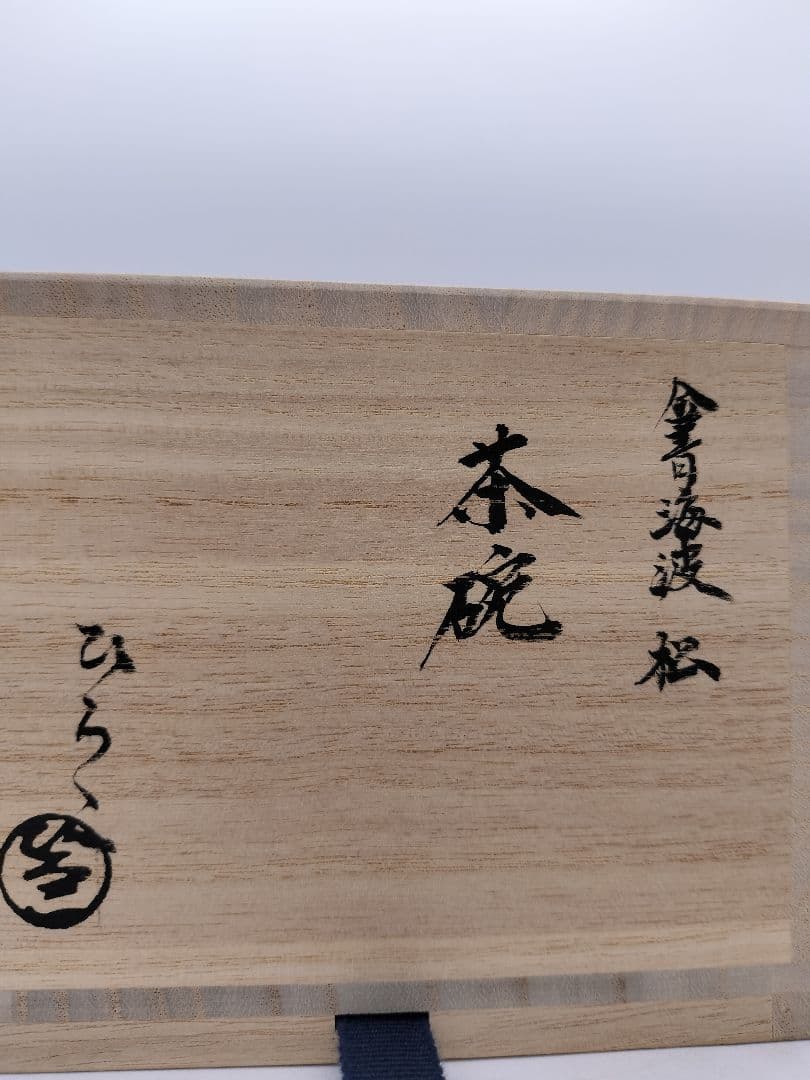 金青海波 松
茶碗
ひらく